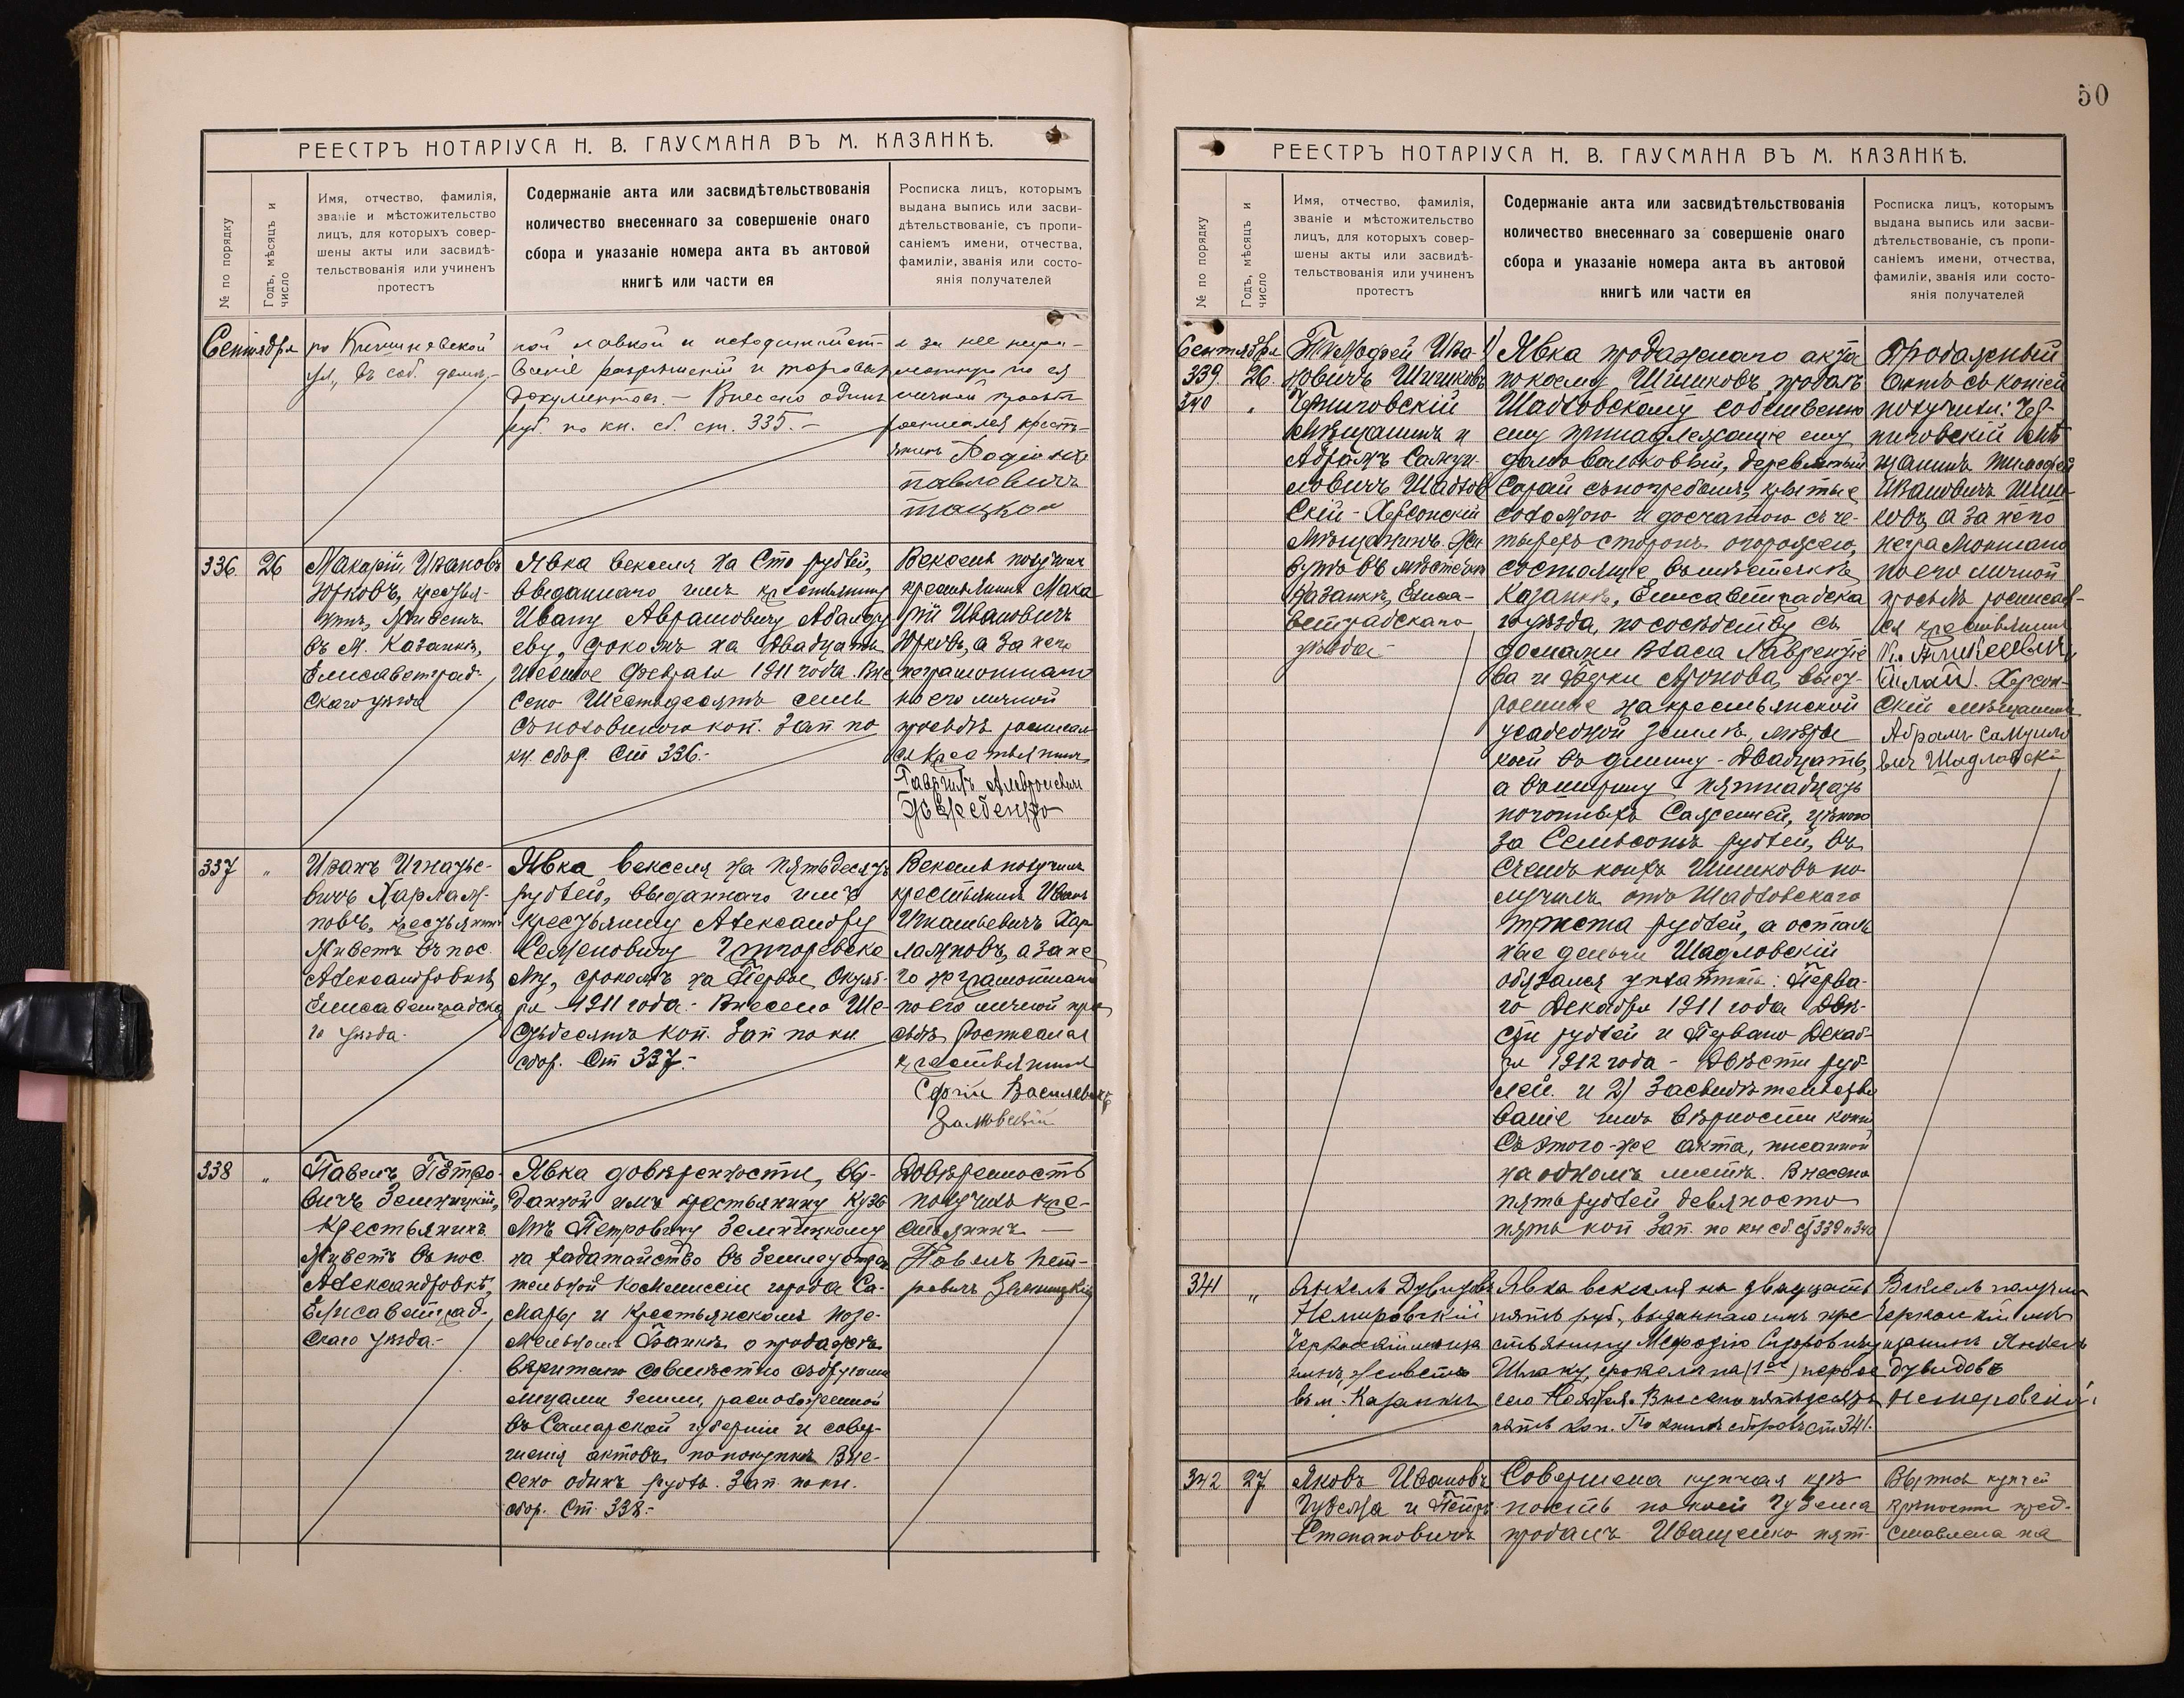 РЕЕСТРЪ НОТАРІУСА Н. В. ГАУСМАНА ВЪ М. КАЗАНКѢ.
№ по порядку
Годъ, мѣсяцъ и
число
Имя, отчество, фамилія,
званіе и мѣстожительство
лицъ, для которыхъ совер-
шены акты или засвидѣ-
тельствованія или учиненъ
протестъ
Содержаніе акта или засвидѣтельствованія
количество внесеннаго за совершеніе онаго
сбора и указаніе номера акта въ актовой
книгѣ или части ея
Росписка лицъ, которымъ
выдана выпись или засви-
дѣтельствованіе, съ пропи-
саніемъ имени, отчества,
фамиліи, званія или состо-
янія получателей
Сентября
по Кишиневской
ул., въ соб. домѣ.-
ной лавкой и
разрѣшеній и торговыхъ
документовъ. - Внесено одинъ
руб. по кн. сб. ст. 335.-
и за нее негра-
мотную по ея
личной просьбѣ
росписался кресть-
янинъ Родіонъ
павловичъ
336.
26
Макарій Ивановъ
Юрковъ, крестья-
нинъ, живетъ
въ м. Казанкѣ,
Елисаветград-
скаго уѣзда
Явка векселя на Сто рублей,
выданнаго имъ крестьянину
Ивану Аврамовичу
еву, срокомъ на двадцать
шестое февраля 1911 года. Вне
сено Шестьдесятъ семь
съ половиною коп. Зап по
кн. сбор. Ст 336.-
Вексель получилъ
крестьянинъ Мака
рій Ивановичъ
Юрковъ, а за него
неграмотнаго
по его личной
просьбѣ росписал
ся крестьянинъ
Гавріилъ
337
"
Иванъ Игнатье-
вичъ Харлам-
повъ, крестьянинъ
живетъ въ пос.
Александровкѣ,
Елисаветградска
го уѣзда.
Явка векселя на пятьдесятъ
рублей, выданнаго имъ
крестьянину Александру
Семеновичу Григоревско
му, срокомъ на Первое Октяб-
ря 1911 года. - Внесено Ше-
стьдесятъ коп. Зап по кн.
сбор. Ст 337.-
Вексель получилъ
крестьянинъ Иванъ
Игнатьевичъ Хар
ламповъ, а за не
го неграмотнаго
по его личной про
сьбѣ росписался
крестьянинъ
338
"
Павелъ Петро-
вичъ Земницкій,
крестьянинъ.
Живетъ въ пос.
Александровкѣ,
Елисаветград-
скаго уѣзда.-
Явка довѣренности, вы-
данной имъ крестьянину Кузь
мѣ Петровичу Земницкому
на ходатайство въ Землеустрои
тельной Коммиссіи города Са-
мары и Крестьянскомъ позе-
мельномъ Банкѣ о продажѣ
вѣрителю совмѣстно съ другими
лицами земли, расположенной
въ Самарской губерніи и совер-
шенія актовъ по покупкѣ Вне-
сено одинъ рубль. Зап по кн.
сбор. Ст. 338.-
Довѣренность
получилъ кре-
стьянинъ
Павелъ Пет-
ровичъ Земницкій
50
РЕЕСТРЪ НОТАРІУСА Н. В. ГАУСМАНА ВЪ М. КАЗАНКѢ.
№ по порядку
Годъ, мѣсяцъ и
число
Имя, отчество, фамилія,
званіе и мѣстожительство
лицъ, для которыхъ совер-
шены акты или засвидѣ-
тельствованія или учиненъ
протестъ
Содержаніе акта или засвидѣтельствованія
количество внесеннаго за совершеніе онаго
сбора и указаніе номера акта въ актовой
книгѣ или части ея
Росписка лицъ, которымъ
выдана выпись или засви-
дѣтельствованіе, съ пропи-
саніемъ имени, отчества,
фамиліи, званія или состо-
янія получателей
Сентября
339.
26.
340
"
Тимофей Ива-
новичъ Шишковъ
Черниговскій
мѣщанинъ и
Абрамъ Самуи-
ловичъ Шадлов
скій - Херсонскій
мѣщанинъ. Жи
вутъ въ мѣстечкѣ
Казанкѣ, Елиса-
ветградскаго
уѣзда
1) Явка продажнаго акта
по коему Шишковъ продалъ
Шадловскому собственно
ему принадлежащіе ему
домъ вальковый, деревянный
сарай съ погребомъ, крытые
соломою и досчатою съ че-
тырехъ сторонъ огорожею,
состоящіе въ мѣстечкѣ
Казанкѣ, Елисаветградска
го уѣзда, по сосѣдству съ
домами Власа Лаврентье
ва и Аронова, высу-
роенные на крестьянской
усадебной землѣ, мѣрою
кой въ длину - двадцать,
а въ ширину пятнадцать
погонныхъ Саженей, цѣною
за Семьсотъ рублей, въ
счетъ коихъ Шишковъ по
лучилъ отъ Шадловскаго
триста рублей, а осталь
ные деньги Шадловскій
обязался уплатить: Перва-
го Декабря 1911 года Двѣ-
сти рублей и Перваго Декаб-
ря 1912 года - Двѣсти руб-
лей. и 2) Засвидѣтельство
ваніе имъ вѣрности копіи
съ этого-же акта, писанной
на одномъ листѣ. Внесено
пять рублей девяносто
пять коп Зап. по кн сб. ст 339 и 340
Продажный
актъ съ копіей
получили: Чер-
ниговскій мѣ
щанинъ Тимофей
Ивановичъ Шиш-
ковъ, а за него
неграмотнаго
по его личной
просьбѣ росписал-
ся крестьянинъ
Херсон-
скій мѣщанинъ
Абрамъ Самуило
вич Шадловскій
341
"
Анкель Дувидовъ
Немировскій
Черкасскій мѣща
нинъ, живетъ
въ м. Казанкѣ
Явка векселя на двадцать
пять руб., выданнаго имъ кре
стьянину Мефодію Сидоровичу
Шпаку, срокомъ на (1ое) первое
сего Ноября. Внесено пятьдесятъ
пять коп. По книгѣ сборовъ ст 341.
Вексель получилъ
Черкасскій мѣ
щанинъ Янкель
Дувидовъ
немеровскій
342
27
Яковъ Ивановъ
Гудема и Петръ
Степановичъ
Совершена купчая крѣ
пость по коей Гудема
продалъ Иващенко пят-
Выпись купчей
крѣпости пред-
ставлена на